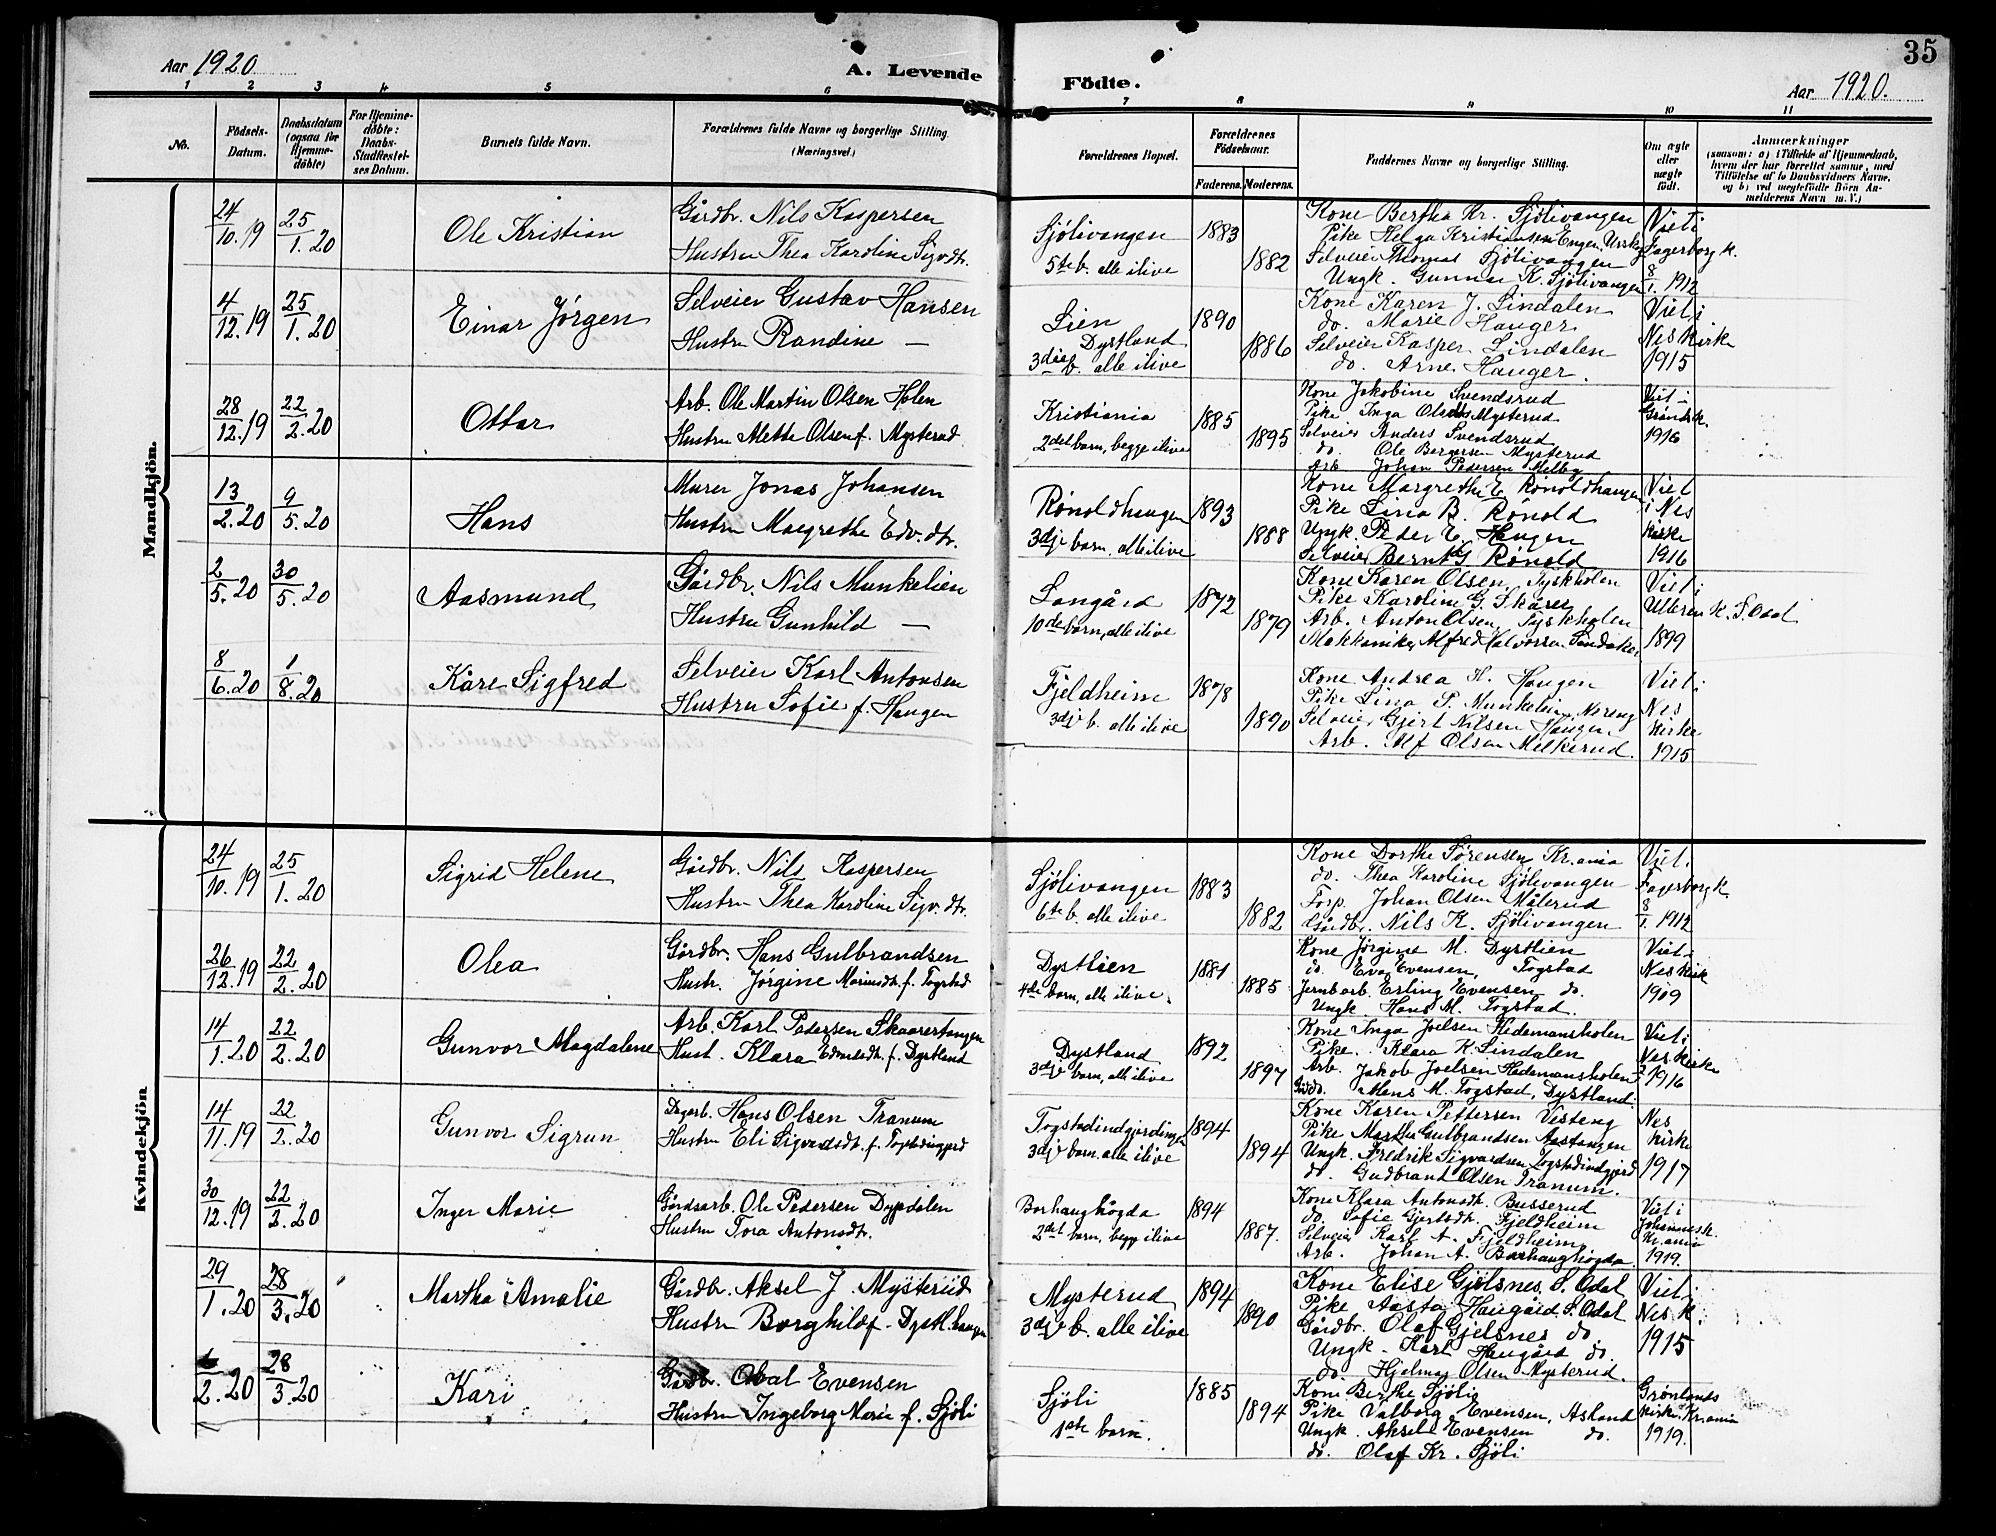 35
Aar 1920
A. Levende
Födte.
Aar 1920.
1 2 3 4 5 6 7 8 9 10 11
No.
Födsels-
Datum.
Daabsdatum
(ogsaa for
Hjemme-
döbte)
For Hjemme-
döbte:
Daabs-
Stadfæstel-
ses Datum.
Barnets fulde Navn.
Forældrenes fulde Navne og borgerlige Stilling.
(Næringsvei.)
Forældrenes Bopæl.
Forældrenes
Födselsaar.
Faderens.
Moderens.
Faddernes Navne og borgerlige Stilling.
Om ægte
eller
uægte
født.
Anmærkninger
(saasom: a) i Tilfælde af Hjemmedaab,
hvem der har forrettet samme, med
Tilföielse af to Daabsvidners Navne,
og b) ved uægtefödte Börn An-
melderens Navn m.V.)
Mandkjön.
24/10.19 25/1.20 Ole Kristian
Gårdbr. Nils Kaspersen
Hustru Thea Karoline Sigv.dt.
Sjölivangen
5te b. alle ilive
1883
1882
Kone Bertha Kr. Sjölivangen
Pike Helga Kristiansen Engen, Urskog
Selveier Thomas Sjölivangen
Ungk. Gunnar K. Sjölivangen
Viet i
Fagerborg k.
8/1. 1912
4/12.19 25/1.20 Einar Jörgen
Selveier Gustav Hansen
Hustru Randine —
Lien
Dystland
3die b. alle ilive
1890
1886
Kone Karen J. Lindalen
do. Marie Hauger
Selveier Kasper Lindalen
do. Arne Hauger.
Viet i
Nes kirke
1915
28/12.19 22/2.20 Ottar
Arb. Ole Martin Olsen Holen
Hustru Mette Olsen f. Mysterud
Kristiania
2det barn, begge ilive
1885
1895
Kone Jakobine Svendsrud
Pike Inga Olsdtr Mysterud
Selveier Anders Svendsrud
do Ole Bergersen Mysterud
Arb. Johan Pedersen Melby
Viet i
Grøndsk.
1916
13/2.20 9/5.20 Hans
Murer Jonas Johansen
Hustru Margrethe Edv. dtr.
Rönoldhaugen
3dje barn. alle ilive
1893
1888
Kone Margrethe E. Rönoldhaugen
Pike Lina B. Rönold
Ungk. Peder E. Haugen
Selveier Bernt G Rönold
Viet
i Nes
kirke
1916
2/5.20 30/5.20 Aasmund
Gårdbr. Nils Munkelien
Hustru Gunhild —
Langård
10de barn, alle ilive
1872
1879
Kone Karen Olsen, Tyskholen
Pike Karoline G. Skårer
Arb. Anton Olsen, Tyskholen
Mekkaniker Alfred Halvorsen Sandaker
Viet i
Ulleren k. S. Odal
1899
8/6.20 1/8.20 Kåre Sigfred
Selveier Karl Antonsen
Hustru Sofie f. Haugen
Fjeldheim
3dje b. alle ilive
1878
1890
Kone Andrea H. Haugen
Pike Lina P. Munkelien, Nereng
Selveier Gjert Nilsen Haugen
Arb. Alf Olsen Milkerud.
Viet i
Nes
kirke
1915
Kvindekjön
24/10.19 25/1.20 Sigrid Helene
Gårdbr. Nils Kaspersen
Hustru Thea Karoline Sigv. dt.
Sjölivangen
6te b. alle ilive
1883
1882
Kone Dorthe Sørensen Kr.ania
do. Thea Karoline Sjölivangen
Forp. Johan Olsen Målerud
Gårdbr. Nils K. Sjölivangen
Viet i
Fagerborg k.
8/1. 1912
26/12.19 22/2.20 Olea
Gårdbr. Hans Gulbrandsen
Hustr. Jörgine Mariusdt. f. Togstad
Dystlien
4de barn, alle ilive.
1881
1885
Kone Jörgine M. Dystlien
do. Eva Evensen, Togstad
Jernb.arb. Erling Evensen do.
Ungk. Hans M. Togstad.
Viet i
Nes kirk
1909
14/1.20 22/2.20 Gunvor Magdalene
Arb. Karl Pedersen Skaarertangen
Hust. Klara Edvardsdt. f. Dystland
Dystland
3dje barn, alle ilive
1892
1897
Kone Inga Joelsen Hedemansholen
Pike. Klara K. Lindalen
Arb. Jakob Joelsen Hedemansholen
do. Mons M. Togstad, Dystland.
Viet i
Nes kirke
1916
14/11.19 22/2.20 Gunvor Sigrun
Dagarb. Hans Olsen Tranum
Hustru Eli Sigvardsdt. f. Togstadindgjord
Togstadindgjordingen
3dje barn. alle ilive
1894
1894
Kone Karen Pettersen Vesteng
Pike Martha Gulbrandsen Aastangen
Ungk. Fredrik Sigvardsen Togstadindgjord
do. Gudbrand Olsen Tranum.
Nes
kirke
1917
30/12.19 22/2.20 Inger Marie
Gårdsarb. Ole Pedersen Dypdalen
Hustru Tora Antonsdt.
Borhaughögda
2det barn, begge ilive
1894
1887.
Kone Klara Antonsdt. Busserud
do. Sofie Gjertsdt. Fjeldheim
Selveier Karl A. Fjeldheim
Arb. Johan A. Borhaughögda
Viet i
Johannesk.
Kr.ania
1919.
29/1.20 28/3.20 Martha Amalie
Gårdbr. Aksel J. Mysterud
Hustru Borghild f. Dystl.haugen
Mysterud
3dje b. alle ilive
1894
1890
Kone Elise Gjölsnes, S. Odal
Pike Aasta Haugård S. Odal
Gårdbr. Olaf Gjelsnes do.
Ungk. Karl Haugård do.
do. Hjalmar Olsen Mysterud.
Viet i
Nes k.
1915
/2.20 28/3.20 Kari
Gårdbr. Oval Evensen
Hustru Ingeborg Marie f. Sjöli
Sjöli
1ste barn.
1885
1894
Kone Berthe Sjöli
Pike Valborg Evensen, Asland
Ungk. Aksel Evensen do.
do. Olaf Kr. Sjöli
Grønlands
kirke Kr.ania
1919.